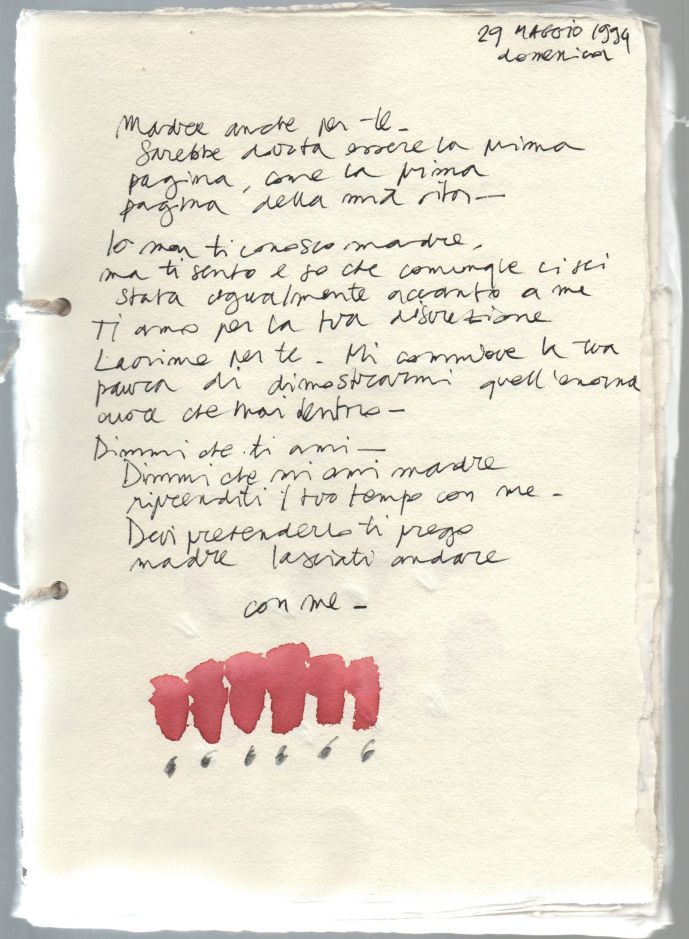 29 MAGGIO 1994
domenica
Madre anche per te_
Sarebbe dovuta essere la prima
pagina, come la prima
pagina della mia
Io non ti conosco madre,
ma ti sento e so che comunque ci sei
stata egualmente accanto a me
Ti amo per la tua discrezione
Lacrime per te_ Mi commuove la tua
paura di dimostrarmi quell'enorme
cuore che hai dentro_
Dimmi che ti ami_
Dimmi che mi ami madre
riprenditi il tuo tempo con me_
Devi pretenderlo ti prego
madre lasciati andare
con me_
6 6 6 6 6 6